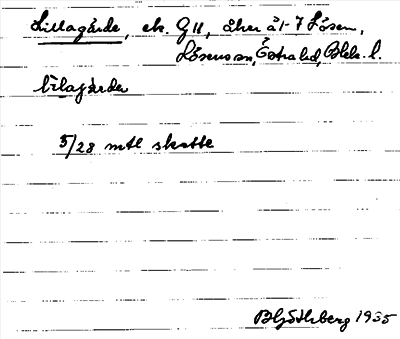 Lillagärde, ek. G11, åker å 1-7 Lösen,
Lösens sn, Östra hd, Blek. l.
lìlagä̀rde
5/28 mtl skatte
B Hjöthberg 1935